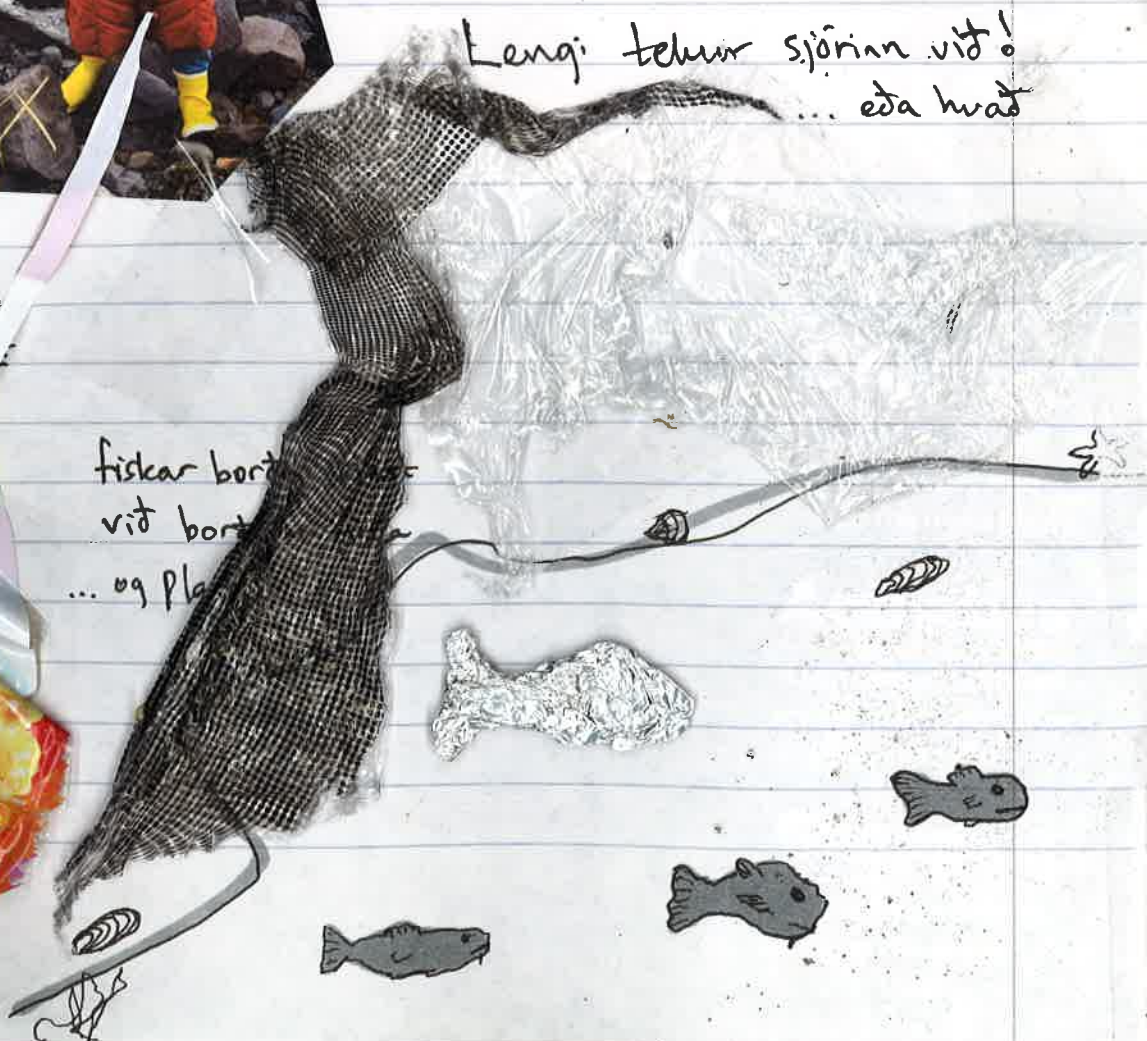 Lengi tekur sjórinn við!
... eða hvað
fiskar
við
... og